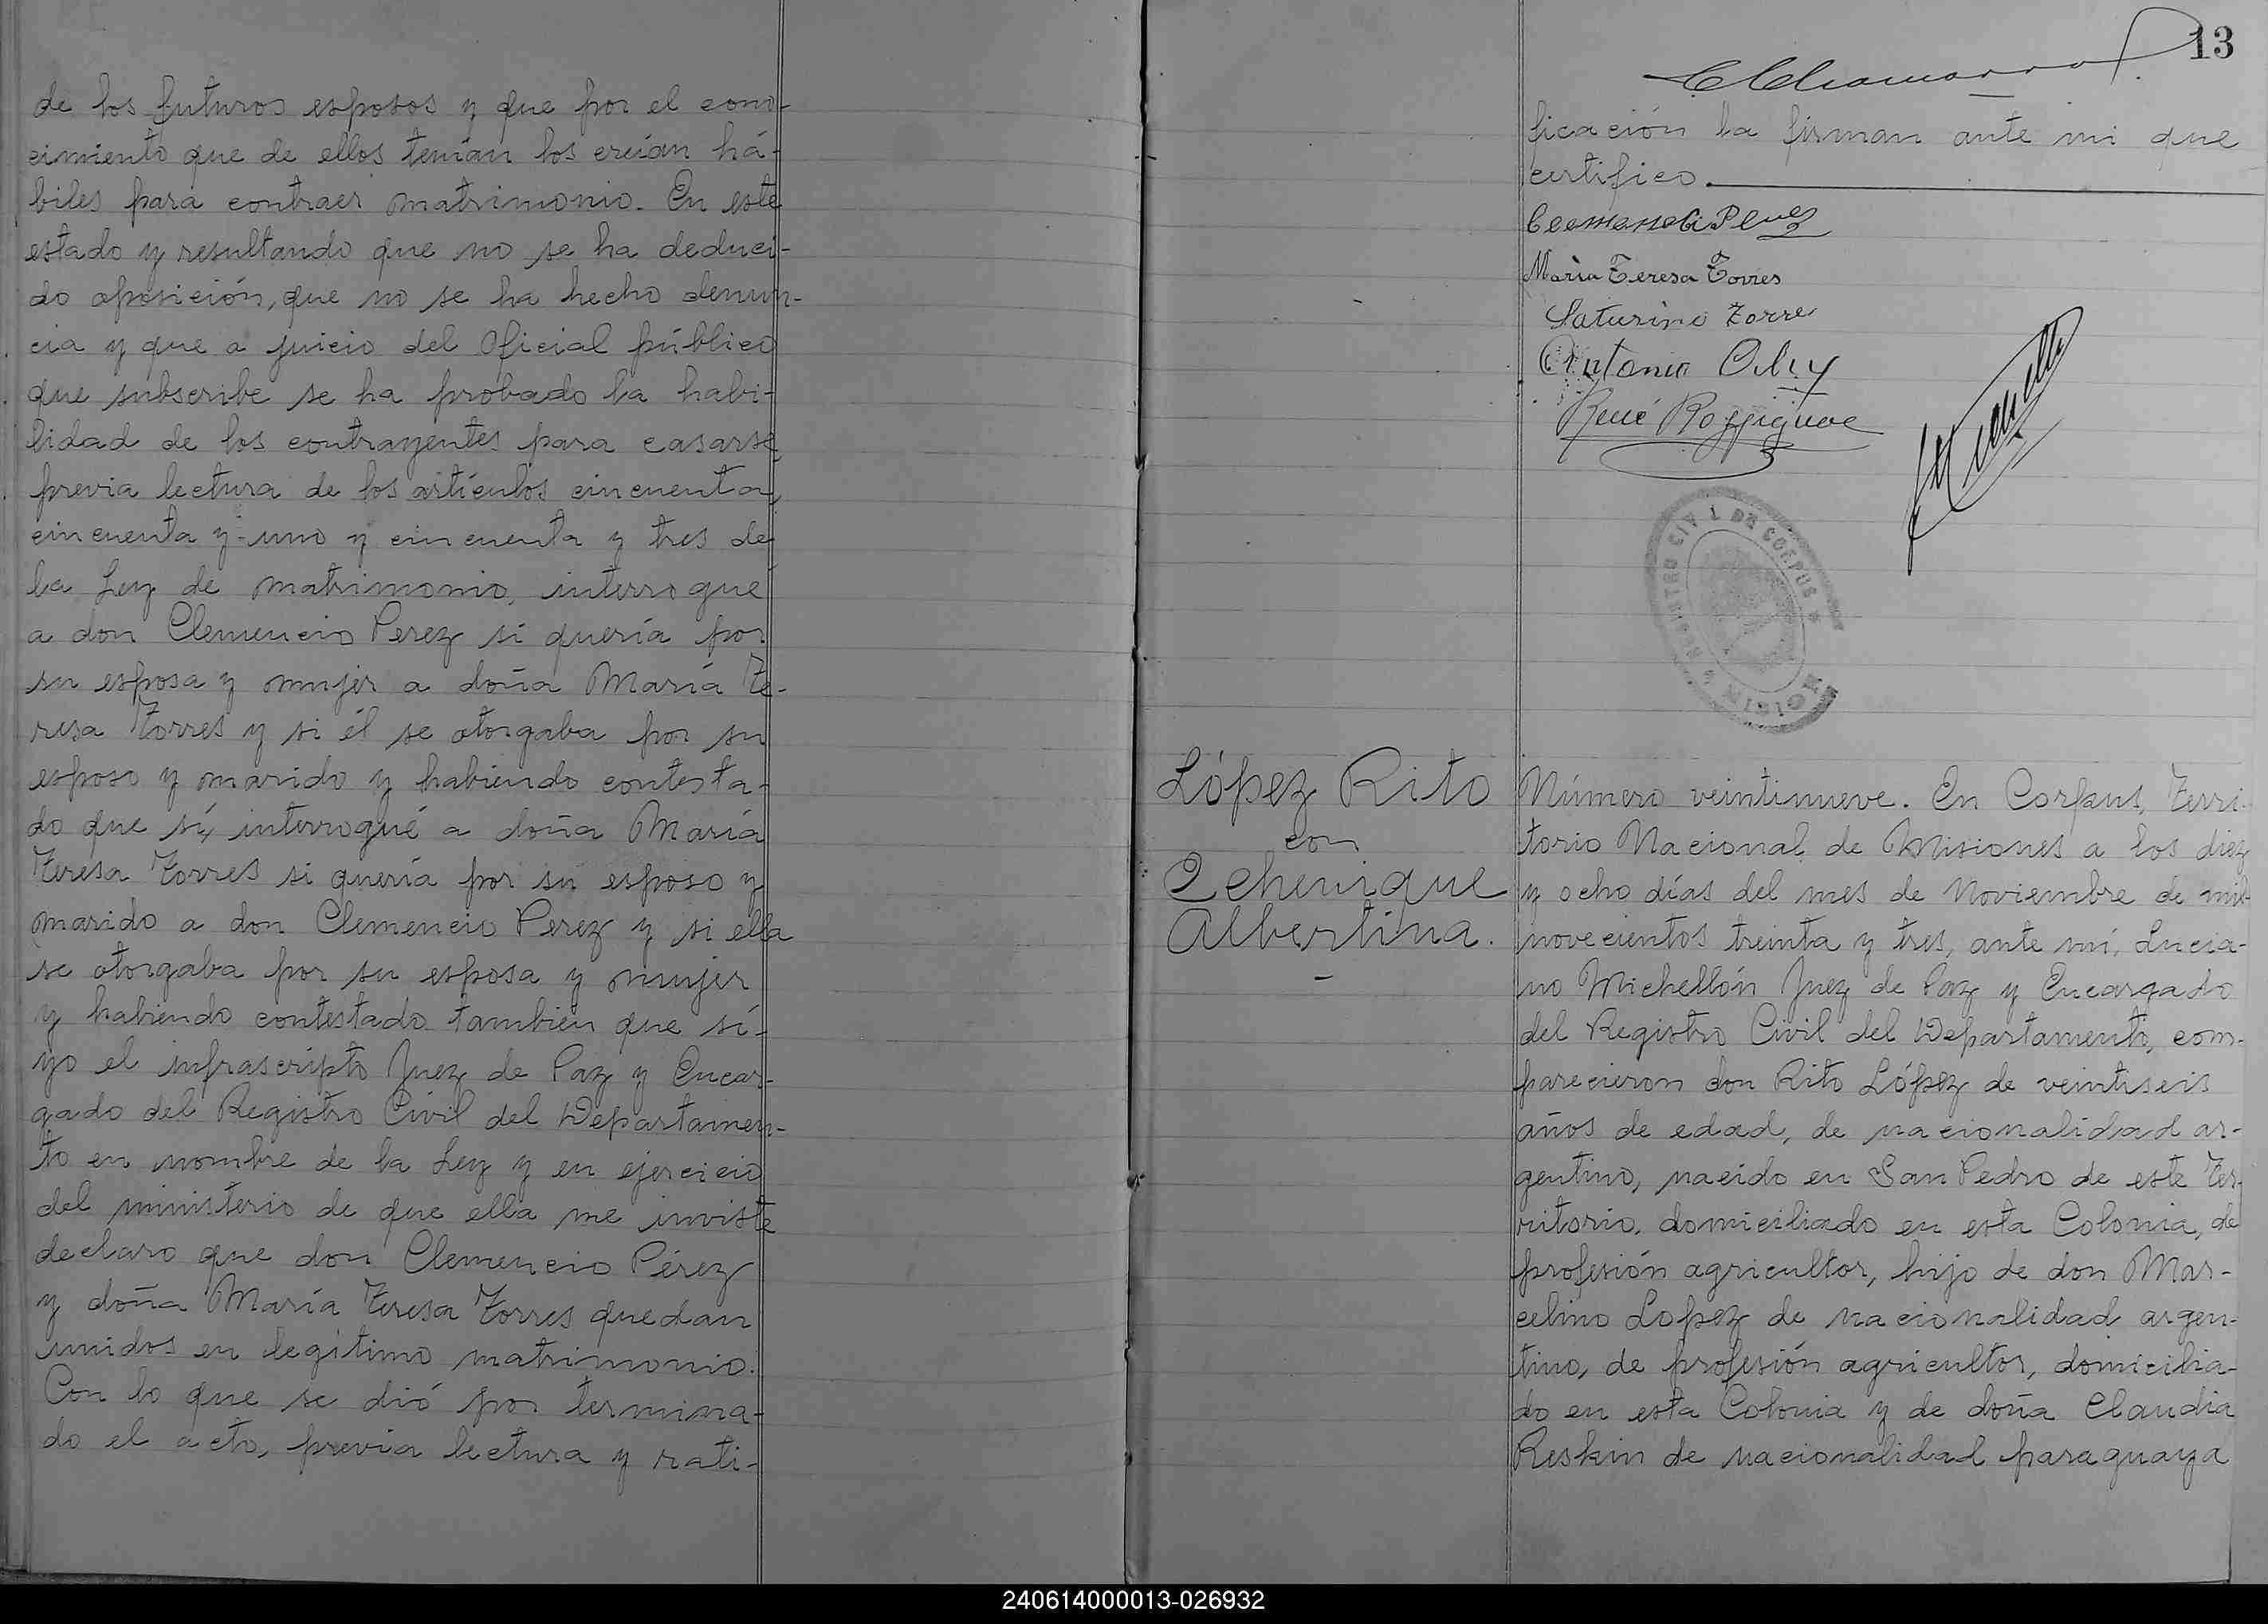 de los futuros esposos y que por el cono-
cimiento que de ellos tenían los creían há-
biles para contraer matrimonio. En este
estado y resultando que no se ha deduci-
do oposición, que no se ha hecho denun-
cia y que a juicio del Oficial público
que subscribe se ha probado la habi-
lidad de los contrayentes para casarse,
previa lectura de los artículos cincuenta,
cincuenta y uno y cincuenta y tres de
la Ley de matrimonio, interrogué
a don Clemencio Perez si quería por
su esposa y mujer a doña María Te-
resa Torres y si él se otorgaba por su
esposo y marido y habiendo contesta-
do que sí, interrogué a doña María
Teresa Torres si quería por su esposo y
marido a don Clemencio Perez y si ella
se otorgaba por su esposa y mujer
y habiendo contestado también que sí-
yo el infrascripto Juez de Paz y Encar-
gado del Registro Civil del Departamen-
to en nombre de la Ley y en ejercicio
del ministerio de que ella me inviste
declaro que don Clemencio Pérez
y doña María Teresa Torres quedan
unidos en legítimo matrimonio.
Con lo que se dió por termina-
do el acto, previa lectura y rati-
13
ficación la firman ante mi que
certifico.
Perez
Maria Teresa Torres
Saturino Torres
Antonio
René
REGISTRO CIVIL DE CORPUS
López Rito
con
Echenique
Albertina.
Número veintinueve. En Corpus, Terri-
torio Nacional de Misiones a los diez
y ocho días del mes de Noviembre de mil
novecientos treinta y tres, ante mí, Lucia-
no Michellón Juez de Paz y Encargado
del Registro Civil del Departamento, com-
parecieron don Rito López de veintiseis
años de edad, de nacionalidad ar-
gentino, nacido en San Pedro de este Ter-
ritorio, domiciliado en esta Colonia, de
profesión agricultor, hijo de don Mar-
celino Lopez de nacionalidad argen-
tino, de profesión agricultor, domicilia-
do en esta Colonia y de doña Claudia
Reskin de nacionalidad paraguaya
240614000013-026932